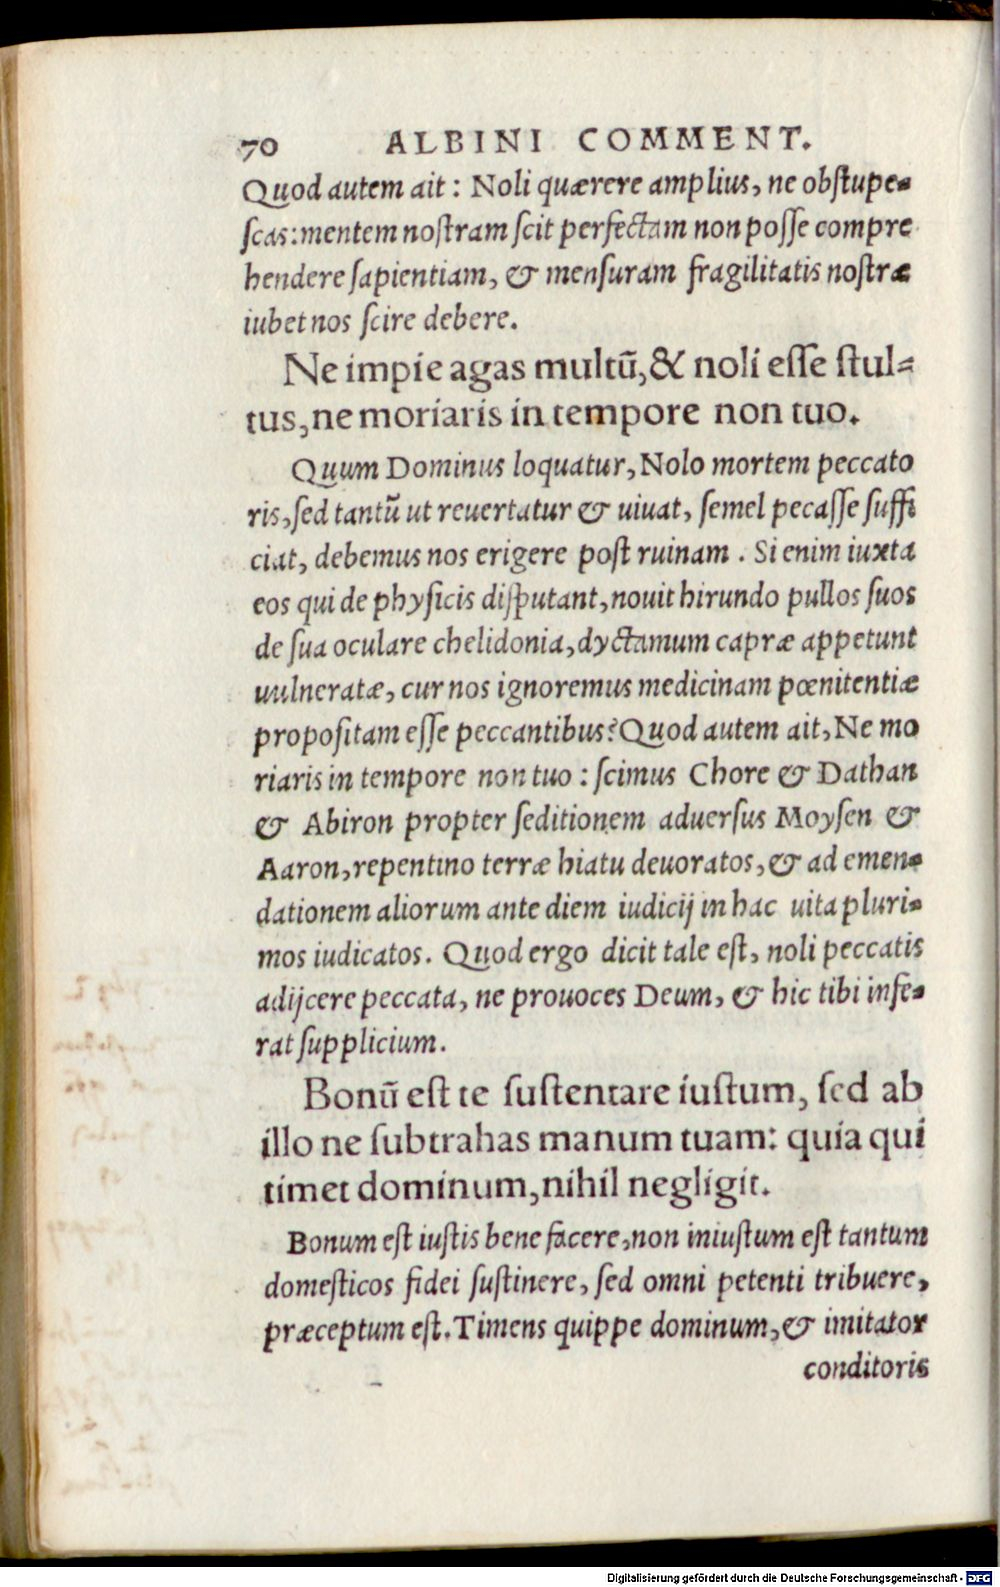 70 ALBINI COMMENT.
Quod autem ait : Noli quærere amplius, ne obſtupe-
ſcas: mentem noſtram ſcit perfectam non poſſe compre
hendere ſapientiam, & menſuram fragilitatis noſtræ
iubet nos ſcire debere.
Ne impie agas multū, & noli eſſe ſtul-
tus, ne moriaris in tempore non tuo.
Quum Dominus loquatur, Nolo mortem peccato
ris, ſed tantū ut reuertatur & uiuat, ſemel pecaſſe ſuffi
ciat, debemus nos erigere poſt ruinam . Si enim iuxta
eos qui de phyſicis diſputant, nouit hirundo pullos ſuos
de ſua oculare chelidonia, dyctamum capræ appetunt
uulneratæ, cur nos ignoremus medicinam pœnitentiæ
propoſitam eſſe peccantibus? Quod autem ait, Ne mo
riaris in tempore non tuo : ſcimus Chore & Dathan
& Abiron propter ſeditionem aduerſus Moyſen &
Aaron, repentino terræ hiatu deuoratos, & ad emen-
dationem aliorum ante diem iudicij in hac uita pluri-
mos iudicatos. Quod ergo dicit tale eſt, noli peccatis
adijcere peccata, ne prouoces Deum, & hic tibi infe-
rat ſupplicium.
Bonū eſt te ſuſtentare iuſtum, ſed ab
illo ne ſubtrahas manum tuam: quia qui
timet dominum, nihil negligit.
Bonum eſt iuſtis bene facere, non iniuſtum eſt tantum
domeſticos fidei ſuſtinere, ſed omni petenti tribuere,
præceptum eſt. Timens quippe dominum, & imitator
conditoris
Digitalisierung gefördert durch die Deutsche Forschungsgemeinschaft - DFG